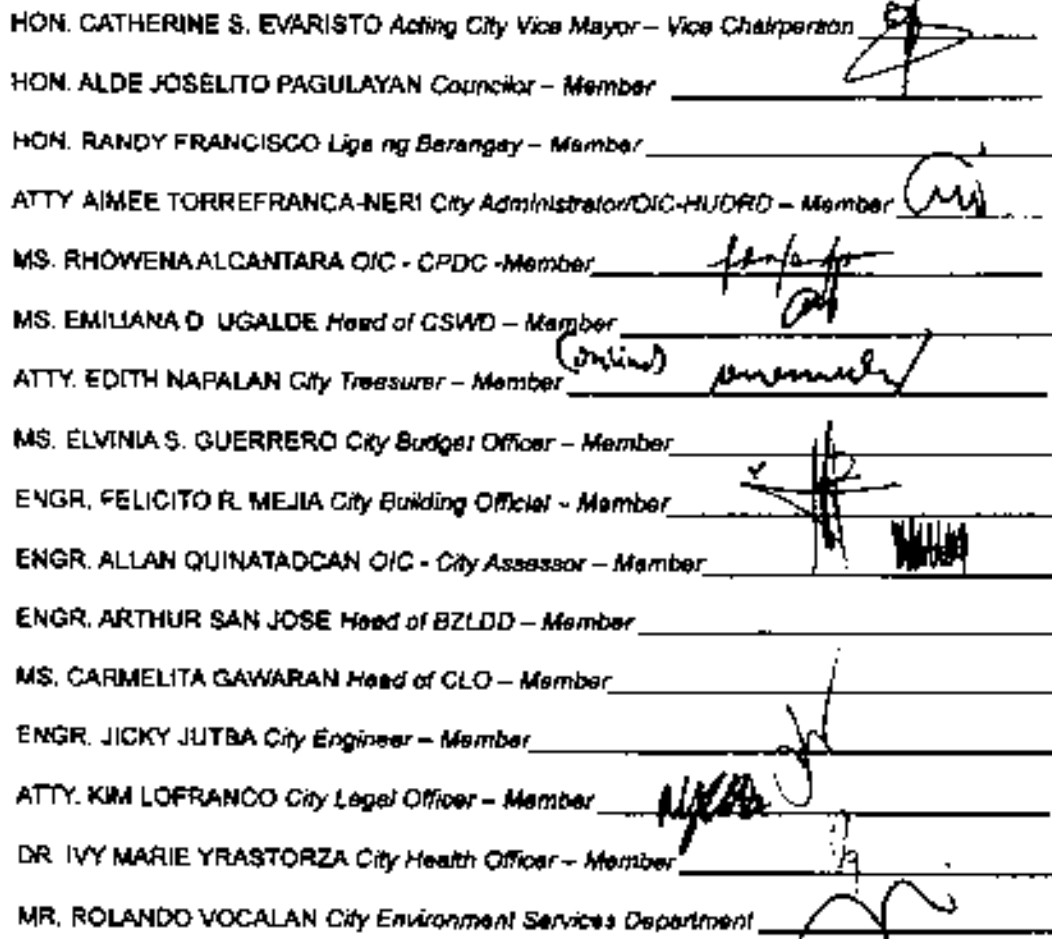 HON. CATHERINE S. EVARISTO Acting City Vice Mayor – Vice Chairperson
HON. ALDE JOSELITO PAGULAYAN Councilor – Member
HON. RANDY FRANCISCO Liga ng Barangay – Member
ATTY AIMEE TORREFRANCA-NERI City Administrator/OIC-HUDRD – Member
MS. RHOWENA ALCANTARA OIC - CPDC -Member
MS. EMILIANA D UGALDE Head of CSWD – Member
ATTY. EDITH NAPALAN City Treasurer – Member (online)
MS. ELVINIA S. GUERRERO City Budget Officer – Member
ENGR. FELICITO R. MEJIA City Building Official - Member
ENGR. ALLAN QUINATADCAN OIC - City Assessor – Member
ENGR. ARTHUR SAN JOSE Head of BZLDD – Member
MS. CARMELITA GAWARAN Head of CLO – Member
ENGR. JICKY JUTBA City Engineer – Member
ATTY. KIM LOFRANCO City Legal Officer – Member
DR IVY MARIE YRASTORZA City Health Officer – Member
MR. ROLANDO VOCALAN City Environment Services Department